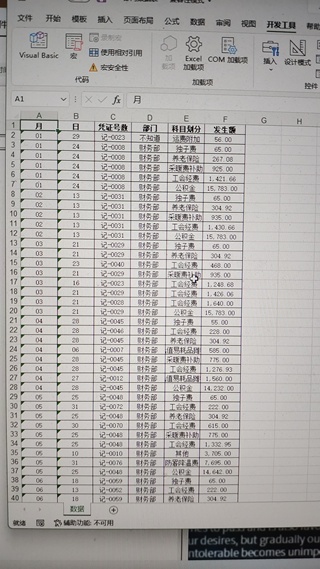 文件 开始 模板 插入 页面布局 公式 数据 审阅 视图 开发工具 帮助
Visual Basic 宏 使用相对引用 宏安全性 加载项 Excel 加载项 COM 加载项 插入 设计模式
代码 加载项 控件
A1 fx 月
A B C D E F G H
1 月 日 凭证号数 部门 科目划分 发生额
2 01 29 记-0023 不知道 运费附加 56.00
3 01 24 记-0008 财务部 独子费 65.00
4 01 24 记-0008 财务部 养老保险 267.08
5 01 24 记-0008 财务部 采暖费补助 925.00
6 01 24 记-0008 财务部 工会经费 1,421.66
7 01 24 记-0008 财务部 公积金 15,783.00
8 02 13 记-0031 财务部 独子费 65.00
9 02 13 记-0031 财务部 养老保险 304.92
10 02 13 记-0031 财务部 采暖费补助 935.00
11 02 13 记-0031 财务部 工会经费 1,430.66
12 02 13 记-0031 财务部 公积金 15,783.00
13 03 21 记-0029 财务部 独子费 65.00
14 03 21 记-0029 财务部 养老保险 304.92
15 03 23 记-0040 财务部 工会经费 468.00
16 03 21 记-0029 财务部 采暖费补助 935.00
17 03 16 记-0023 财务部 工会经费 1,248.68
18 03 21 记-0029 财务部 工会经费 1,426.06
19 03 21 记-0028 财务部 工会经费 1,640.00
20 03 21 记-0029 财务部 公积金 15,783.00
21 04 28 记-0045 财务部 独子费 55.00
22 04 28 记-0046 财务部 工会经费 228.00
23 04 28 记-0045 财务部 养老保险 304.92
24 04 06 记-0007 财务部 值易耗品摊 585.00
25 04 28 记-0045 财务部 采暖费补助 775.00
26 04 28 记-0045 财务部 工会经费 1,276.93
27 04 27 记-0012 财务部 值易耗品摊 1,560.00
28 04 28 记-0045 财务部 公积金 14,232.00
29 05 25 记-0048 财务部 独子费 65.00
30 05 31 记-0072 财务部 工会经费 222.00
31 05 25 记-0048 财务部 养老保险 304.92
32 05 30 记-0070 财务部 工会经费 615.00
33 05 25 记-0048 财务部 采暖费补助 775.00
34 05 25 记-0048 财务部 工会经费 1,332.95
35 05 10 记-0010 财务部 其他 3,705.00
36 05 31 记-0076 财务部 防暑降温费 7,695.00
37 05 25 记-0048 财务部 公积金 14,642.00
38 06 18 记-0059 财务部 独子费 65.00
39 06 13 记-0052 财务部 工会经费 222.00
40 06 18 记-0059 财务部 养老保险 304.92
数据
就绪 辅助功能: 不可用
ur desires, but gradually ou
ntolerable becomes unimp